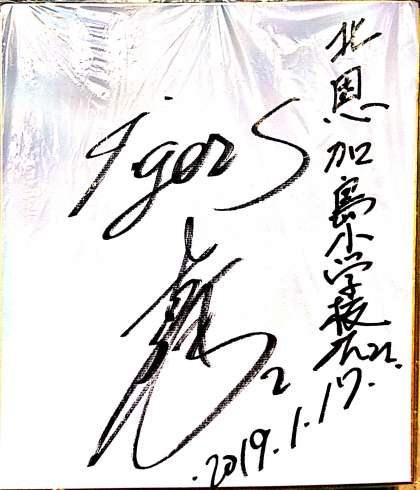 北恩加島小学校
Tiger S
2
.2019.1.17.